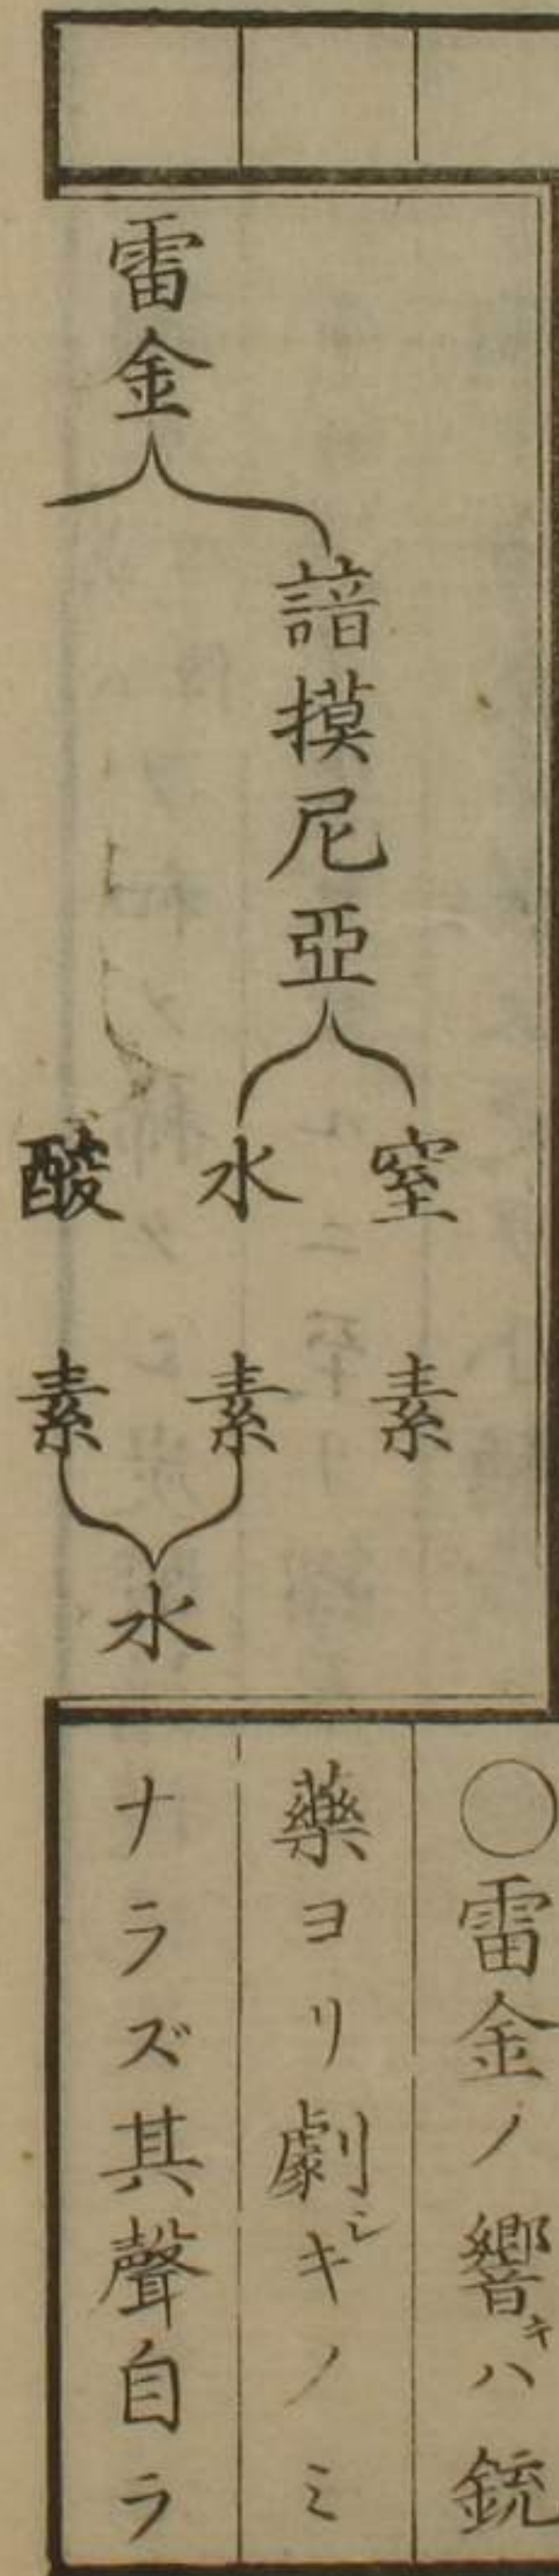 雷金
諳摸尼亞
窒素
水素
酸素
水
○雷金ノ響キハ銃
藥ヨリ劇シキノミ
ナラズ其聲自ラ